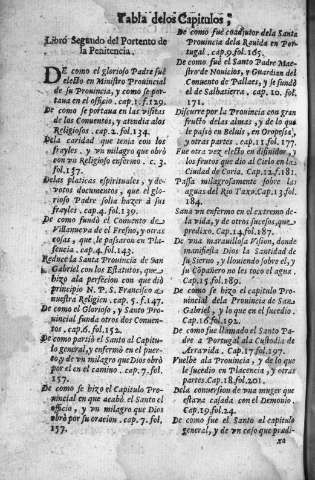 Tabla de los Capitulos;
Libro Segundo del Portento de
la Penitencia.
DE como el glorioso Padre fué
electo en Ministro Provincial
de su Provincia, y como se por-
tava en el officio. cap. 1. f. 129.
De como se portava en las visitas
de los Conventos, y atendia alos
Religiosos. cap. 2. fol. 134.
Dela caridad que tenia con los
frayles. y vn milagro que obró
con vn Religioso enfermo. c. 3.
fol. 137.
Delas platicas espirituales, y de-
votos documentos, que el glo-
rioso Padre solia hazer à sus
frayles. cap. 4. fol. 139.
De como fundó el Convento de
Villanueva de el Fresno, y otras
cosas, que le passaron en Pla-
sencia. cap. 4. fol. 143.
Reduce la Santa Provincia de San
Gabriel con los Estatutos, que
hizo ala perfecion con que dió
principio N. P. S. Francisco à
nuestra Religion. cap. 5. f. 147.
De como el Glorioso, y Santo Pro-
vincial funda otros dos Conven-
tos. cap. 6. fol. 152.
De como partió el Santo al Capitu-
lo general, y enfermò en el puer-
to, y de vn milagro que Dios obrò
por el en el camino. cap. 7. fol.
157.
De como se hizo el Capitulo Pro-
vincial en que acabó el Santo el
officio, y vn milagro que Dios
obró por su oracion. cap. 7. fol.
157.
De como fué coadjutor dela Santa
Provincia dela Rabida en Por-
tugal. cap. 9. fol. 165.
De como fué el Santo Padre Maes-
tro de Novicios, y Guardian del
Convento de Pallaes, y se fundò
el de Salbatierra. cap. 10. fol.
171.
Discurre por la Provincia con gran
fructo delas almas, y de lo que
le passò en Beluis, en Oropessa,
y otras partes. cap. 11. fol. 177.
Fue otra vez electo en difinidor, y
los frutos que dio al Cielo en la
Ciudad de Coria. Cap. 12. f. 181.
Passa milagrosamente sobre las
aguas del Rio Taxo. Cap. 13. fol.
184.
Sana vn enfermo en el extremo de
la vida, y de otros sucesos, que
predixo. Cap. 14. fol. 187.
De vna maravillosa Vision, donde
manifiesta Dios la Santidad de
su Siervo, y lloviendo sobre el, y
su Copañero no les toco el agua.
Cap. 15. fol. 189.
De como se hizo el capitulo Pro-
vincial dela Provincia de San
Gabriel, y lo que en el sucedio.
Cap. 16. fol. 192.
De como fue llamado el Santo Pa-
dre a Portugal ala Custodia de
Arravida. Cap. 17. fol. 197.
Vuelbe ala Provincia, y de lo que
le sucedio en Placencia, y otras
partes. Cap. 18. fol. 201.
Dela conversion de vna muger que
estava casada con el Demonio.
Cap. 19. fol. 24.
De como fue el Santo al capitulo
general, y de vn caso que predi-
xa